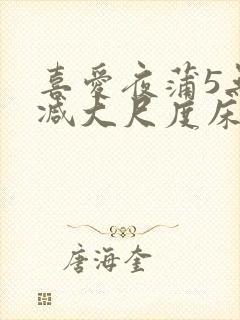 喜爱夜蒲5无
减大尺度床
唐海奎